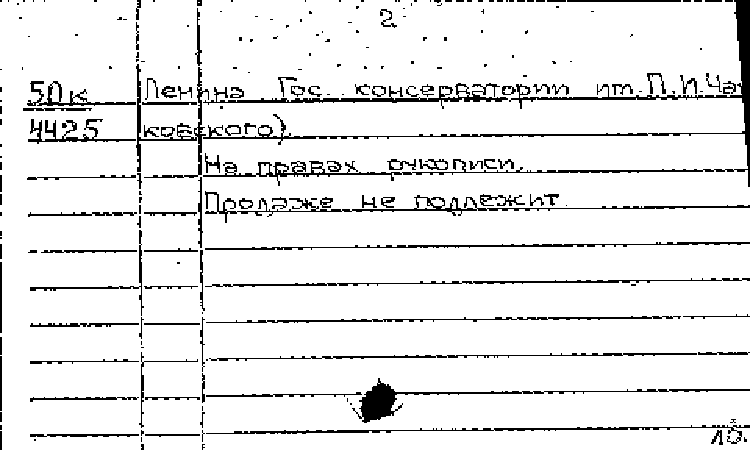 2
50к Ленина Гос. консерватории им. П.И.Чай
4425 ковского).
На правах рукописи.
Продаже не подлежит